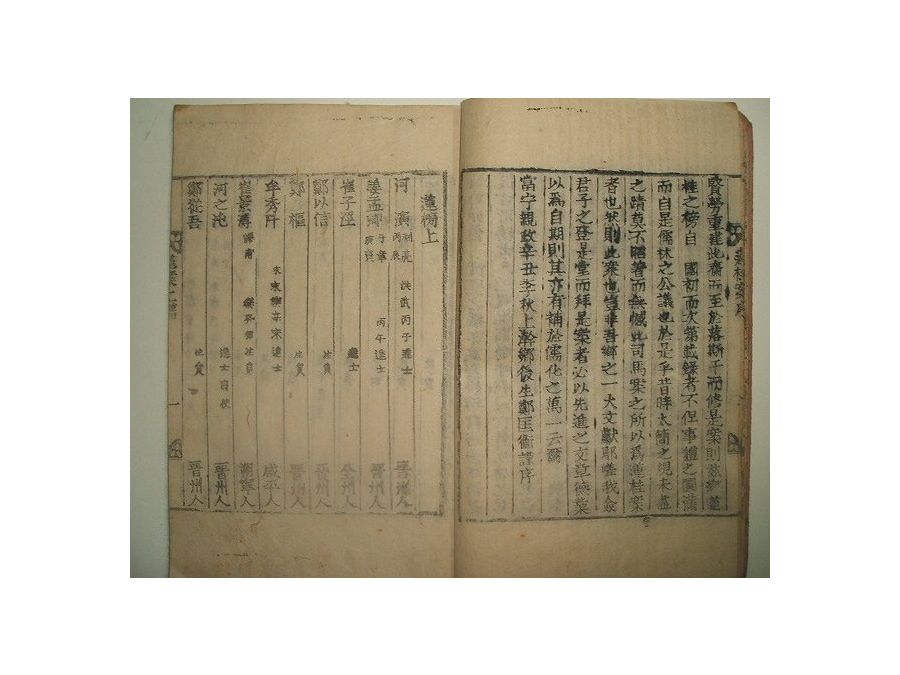 賢勞重建此齋而至於落斯干而修是案則茲鄕蓮
桂之榜自 國初而次第載錄者不但事體之圓滿
而自是儒林之公議也於是乎昔時太簡之規未盡
之蹟莫不昭著而無憾此司馬案之所以爲蓮桂案
者也然則此案也豈非吾鄕之一大文獻耶嗟我僉
君子之登是堂而拜是案者必以先進之文章德業
以爲自期則其亦有補於儒化之萬一云爾
當宁親政辛丑季秋上澣鄕後生鄭匡衡謹序
蓮榜上
河演 洪武丙子進士 晋州人
姜孟卿 丙午進士 晋州人
崔子涇 進士 全州人
鄭以信 生員 晋州人
鄭樞 生員 晋州人
牟秀阡 進士 咸平人
崔 生員 人
河之沌 進士 府使 晋州人
鄭從吾 生員 晋州人